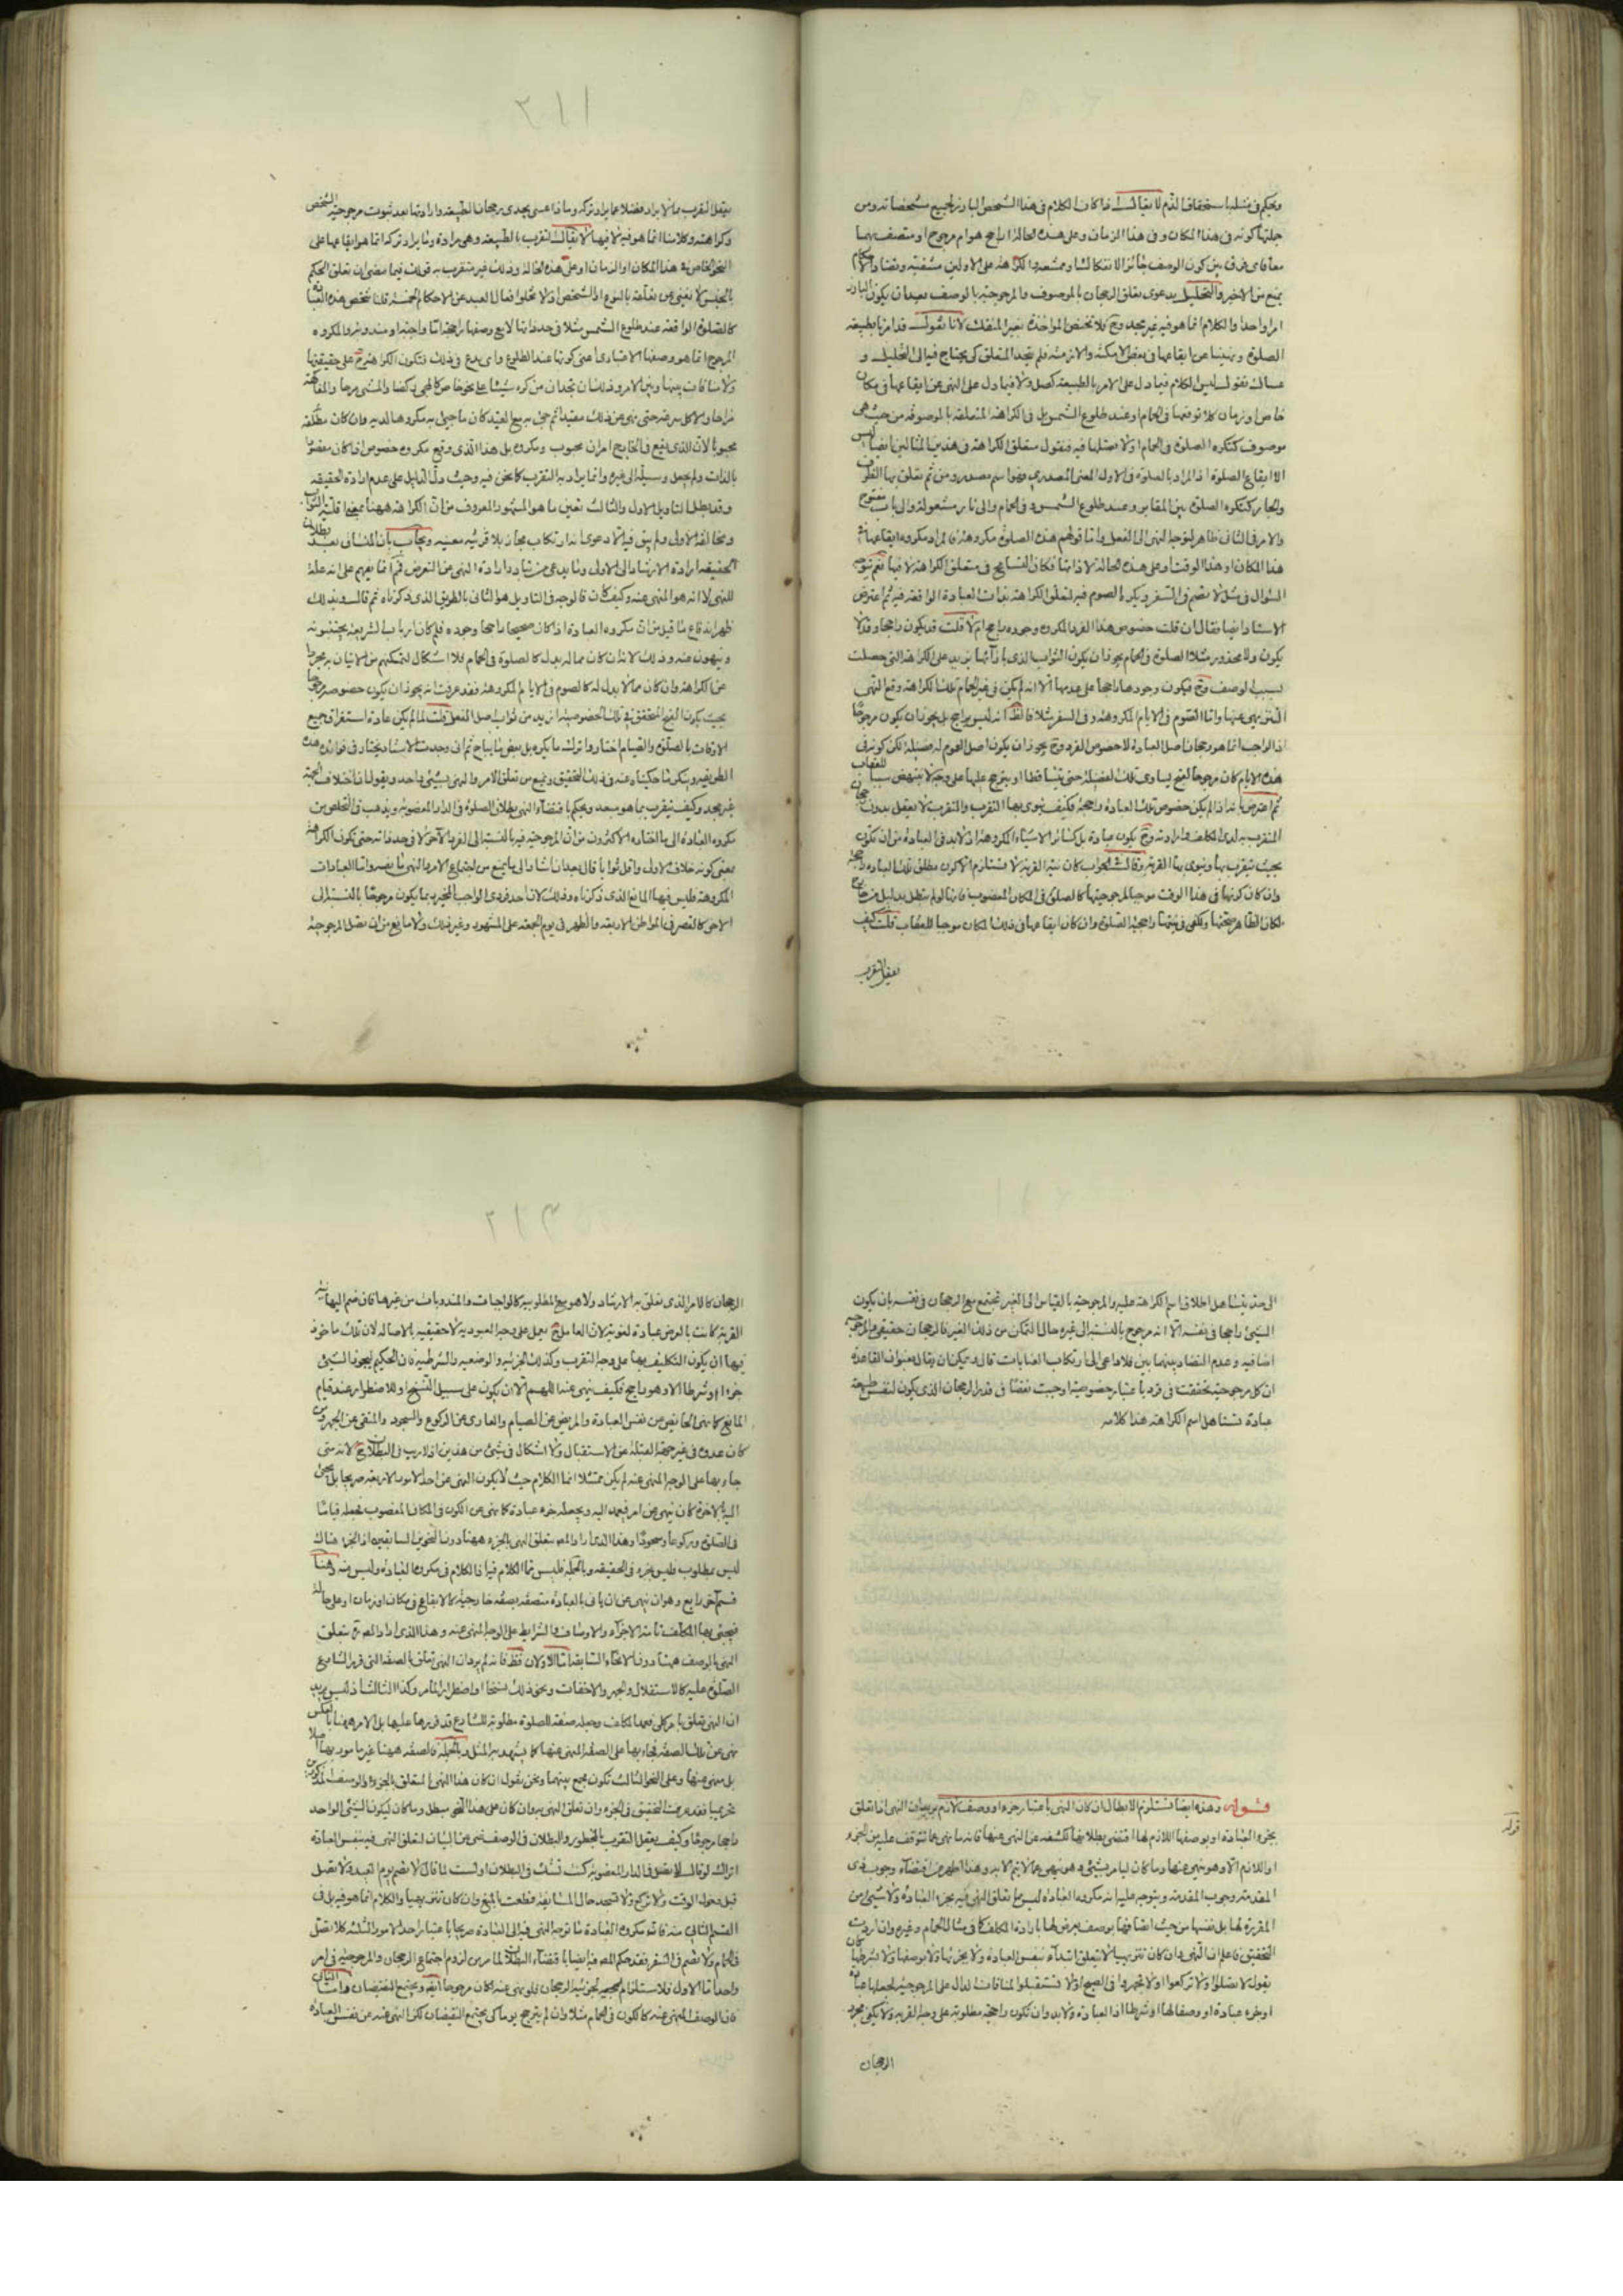 ويحكم في مثلها باستحقاق الذم لا يقال اذا كان الكلام في هذا الشخص البارز لجميع مشخصاته ومن
جملتها كونه في هذا المكان وفي هذا الزمان وعلى هذه الحالة اراجح هو ام مرجوح او متصف بهما
معا فاى فرق بين كون الوصف جائز الانفكاك او ممتنعه
يمنع من الاخير والتحليل بدعوى تعلق الرجحان بالموصوف والمرجوحية بالوصف بعد ان يكون البارز
امرا واحدا والكلام انما هو فيه غير مجد
الصلوة ونهينا عن ايقاعها في بعض الامكنة والازمنة فلم يتحد المتعلق كى يحتاج فيه الى التحليل و
هناك نقول ليس الكلام فيما دل على الامر بالطبيعة كصل ولا فيما دل على النهى عن ايقاعها في مكان
خاص او زمان كلا توقعها في الحمام او عند طلوع الشمس بل في الكراهة المتعلقة بالموصوفة من حيث هى
موصوف كتكره الصلوة في الحمام او لا تصلها فيه فنقول متعلق الكراهة في هذين المثالين ايضا ليس
الا ايقاع الصلوة اذ المراد بالصلوة في الاول المعنى المصدرى فهو اسم مصدر ومن ثم تعلق بها الظرف
والجار كتكره الصلوة بين المقابر وعند طلوع الشمس وفي الحمام والى نار مشعولة والى باب مفتوح
والامر في الثاني ظاهر لتوجه النهى الى الفعل واما قولهم هذه الصلوة مكروهة فالمراد مكروه ايقاعها في
هذا المكان او هذا الوقت او على هذه الحالة لا ذاتها فكان التسامح في متعلق الكراهة لا فيها نعم يتوجه
السؤال في مثل لا تصم في السفر ويكره الصوم فيه لتعلق الكراهة بذات العبادة الواقعة فيه ثم اعترض
الاستاد ايضا فقال ان قلت خصوص هذا الفرد المكروه وجوده راجح ام لا قلت قد يكون راجحا وقد لا
يكون ولا محذور مثلا الصلوة في الحمام يجوز ان يكون الثواب الذى بازائها يزيد على الكراهة التي حصلت
بسبب الوصف وح فيكون وجودها راجحا على عدمها الا انه لم يكن في غير الحمام تلك الكراهة وقع النهى
التنزيهى عنها واما الصوم في الايام المكروهة وفي السفر مثلا فالظ انه ليس براجح بل يجوز ان يكون مرجوحا
اذ الواجب انما هو رجحان اصل العبادة لا خصوص الفرد وح يجوز ان يكون اصل الصوم له فضيلة لكن كونه في
هذه الايام كان مرجوحا لقبح يساوى تلك الفضيلة حتى تساقطا او يترجح عليها على وجه لا ينهض سببا للعقاب
ثم اعترض بانه اذا لم يكن خصوص تلك العبادة راجحة فكيف ينوى بها التقرب والتقرب لا يعقل بدون رجحان
المتقرب به لدى المكلف وارادته وح يكون عبادة بل كسائر الاشياء المكروهة اذ لا بد في العبادة من ان تكون
بحيث يتقرب بها وينوى بها القربة وقال في الجواب كان نية القربة لا تستلزم الا كون مطلق تلك العبادة راجحة
وان كان كونها في هذا الوقت موجبا لمرجوحيتها كالصلوة في المكان المغصوب فانها لو لم تبطل بدليل خارج
لكان الظاهر صحتها ويكفى في نيتها راجحية الصلوة وان كان ايقاعها في ذلك المكان موجبا للعقاب قلت كيف
يعقل التقرب
٢١١
يعقل التقرب بما لا يراد فضلا عما يراد تركه وماذا عسى يجدى رجحان الطبيعة وارادتها بعد ثبوت مرجوحية الشخص
وكراهته وكلامنا انما هو فيه لا فيها لا يقال التقرب بالطبيعة وهى مرادة وما يراد تركه انما هو ايقاعها على
النحو الخاص في هذا المكان او الزمان او على هذه الحالة وذلك غير متقرب به قولك فيما مضى ان تعلق الحكم
بالجنس لا يغنى عن تعلقه بالنوع او الشخص اذ لا تخلو افعال العبد عن الاحكام الخمسة قلنا شخص هذه العبادة
كالصلوة الواقعة عند طلوع الشمس مثلا في حد ذاتها لا مع وصفها راجحة اما واجبة او مندوبة والمكروه
المرجوح انما هو وصفها الاعتبارى اعنى كونها عند الطلوع واى بدع في ذلك فتكون الكراهة ح على حقيقتها
ولا منافات بينها وبين الامر وذلك ان تجد ان من كره شيئا على نحو خاص كالمجى ركضا والمشى مرحا والمفاكهة
مزاحا والاكل بشره حتى نهى عن ذلك مقيدا ثم جئ به مع القيد كان ما جئ به مكروها لديه وان كان مطلقه
محبوبا لان الذى يقع في الخارج امران محبوب ومكروه بل هذا الذى وقع مكروه خصوصا اذا كان مقصودا
بالذات ولم يجعل وسيلة الى غيره وانما يراد به التقرب كما نحن فيه وحيث دل الدليل على عدم ارادة الحقيقة
وقد بطل التاويل الاول والثالث تعين ما هو المشهور المعروف من ان الكراهة ههنا بمعنى اقلية الثواب
ومخالفة الاولى ولم يبق فيه الا دعوى انه ارتكاب مجاز بلا قرينة معينة ويجاب بان المنساق بعد بطلان
الحقيقة ارادة الارشاد الى الاولى
للنهى لا انه هو المنهى عنه وكيف كان فالوجه في التاويل هو الثاني بالطريق الذى ذكرناه ثم قال وبذلك
ظهر اندفاع ما قيل من ان مكروه العبادة اذا كان صحيحا راجحا وجوده فلم كان ارباب الشريعة يجتنبونه
وينهون عنه وذلك لانه ان كان مما له بدل كالصلوة في الحمام فلا اشكال لتمكنهم من الاتيان به مجردا
عن الكراهة وان كان مما لا بدل له كالصوم في الايام المكروهة فقد عرفت انه يجوز ان يكون خصوصه مرجوحا
بحيث يكون القبح المتحقق في تلك الخصوصية ازيد من ثواب اصل الفعل قلت لما لم يكن عادة استغراق جميع
الاوقات بالصلوة والصيام اختاروا ترك ما يكره بل بعض ما يباح ثم انى وجدت الاستاد يختار في فوائده هذه
الطريقة وينكر ما حكيناه عنه في ذلك التحقيق ويمنع من تعلق الامر والنهى بشئ واحد ويقول ان اختلاف الجهة
غير مجد وكيف يتقرب بما هو مبعد ويحكم باقتضاء النهى بطلان الصلوة في الدار المغصوبة ويذهب في التخلص من
مكروه العبادة الى ما اختاره الاكثرون من ان المرجوحية فيه بالنسبة الى الفرد الآخر لا في حد ذاته حتى تكون الكراهة
بمعنى كونه خلاف الاولى واقل ثوابا قال بعد ان اشار الى ما يمنع من اجتماع الامر والنهى ما نصه واما العبادات
المكروهة فليس فيها المانع الذى ذكرناه وذلك لان احد فردى الواجب المخير ربما يكون مرجوحا بالنسبة الى
الاخر كالقصر في المواطن الاربعة والظهر في يوم الجمعة على المشهور وغير ذلك ولا مانع من ان تصل المرجوحية
الى حد يتساهل اطلاق اسم الكراهة عليه والمرجوحية بالقياس الى الغير تجتمع مع الرجحان في نفسه بان يكون
الشئ راجحا في نفسه الا انه مرجوح بالنسبة الى غيره حال التمكن من ذلك الغير فالرجحان حقيقى والمرجوحية
اضافية وعدم التضاد بينهما بين فلا داعى الى ارتكاب العنايات قال ويمكن ان يقال بعنوان القاعدة
ان كل مرجوحية تحققت في فرد باعتبار خصوصية اوجبت نقصا في قدر الرجحان الذى يكون لنفس طبيعة
عبادة تستاهل اسم الكراهة هذا كلامه
قوله وهذه ايضا تستلزم الابطال ان كان النهى باعتبار جزء او وصف لازم يريد ان النهى اذا تعلق
قوله
بجزء العبادة او بوصفها اللازم لها اقتضى بطلانها لكشفه عن النهى عنها فانه ما نهى عما تتوقف عليه من الجزء
او اللازم الا وهو نهى عنها وما كان ليامر بشئ وهو ينهى عما لا يتم الا به وهذا اظهر من اقتضاء وجوب ذى
المقدمة وجوب المقدمة ويتوجه عليه انه مكروه العبادة ليس مما تعلق النهى فيه بجزء العبادة ولا بشئ من
المقررة لها بل نفسها من حيث اتصافها بوصف يعرض لها بارادة المكلف كما في مثال الحمام وغيره وان اردت
التحقيق فاعلم ان النهى وان كان تنزيهيا لا يتعلق ابتداء بنفس العبادة ولا بجزئها ولا بوصفها ولا بشرطها كان
يقول لا تصلوا ولا تركعوا او لا تجهروا في الصبح او لا تستقبلوا لمنافات الدال على المرجوحية لجعلها عبادة
او جزء عبادة او وصفا لها او شرطا اذ العبادة لا بد وان تكون راجحة مطلوبة على وجه القربة ولا يكفى مجرد
الرجحان
٢١٣
الرجحان كالامر الذى تعلق به الارشاد ولا هو مع المطلوبية كالواجبات والمندوبات من غيرها فان ضم اليها نية
القربة كانت بالعرض عبادة لغوية لان العامل ح يعمل على وجه العبودية لا حقيقية بالاصالة لان تلك ماخوذ
فيها ان يكون التكليف بها على وجه التقرب وكذلك الجزئية والوصفية والشرطية فان الحكيم ليجعل الشئ
جزءا او شرطا الا وهو راجح فكيف ينهى عنه اللهم الا ان يكون على سبيل النسخ او للاضطرار عند قيام
المانع كما نهى الحائض عن نفس العبادة والمريض عن الصيام والعارى عن الركوع والسجود والمتقى عن الجهر ومن
كان عدوه في غير جهة القبلة عن الاستقبال ولا اشكال في شئ من هذين اذ لا ريب في البطلان ح لانه متى
جاء بها على الوجه المنهى عنه لم يكن ممتثلا انما الكلام حيث لا يكون النهى عن احد الامور الاربعة صريحا بل يجئ
اليه بالاخرة كان ينهى عن امر فيعمد اليه ويجعله جزء عبادة كما نهى عن الكون في المكان المغصوب فجعله قياما
في الصلوة وركوعا وسجودا وهذا الذى اراد المصـ بتعلق النهى بالجزء ههنا دون النحوين السابقين اذ الجزء هناك
ليس بمطلوب وليس بجزء في الحقيقة وبالجملة فليس مما الكلام فيه اذ الكلام في مكروه العبادة وليس منه وهنا
قسم آخر رابع وهو ان نهى عن ان ياتى بالعبادة متصفة بصفة خارجية كالايقاع في مكان او زمان او على حالة
فيجئ بها المكلف تامة الاجزاء والاوصاف والشرائط على الوجه المنهى عنه وهذا الذى اراد المصـ بتعلق
النهى بالوصف ههنا دون الانحاء السابقة اما الاولان فظ فانه لم يرد ان النهى تعلق بالصفة التي قرر الشارع
الصلوة عليها كالاستقلال والجهر والاخفات ونحو ذلك نسخا او اضطرارا لما مر وكذا الثالث اذ ليس يريد
ان النهى تعلق بامر كلى فعمد المكلف وجعله صفة للصلوة مطلوبة للشارع قد قررها عليها بل الامر ههنا بالعكس
نهى عن تلك الصفة فجاء بها على الصفة المنهى عنها كما يشهد به المثل وبالجملة فالصفة ههنا غير مامور بها اصلا
بل منهى عنها وعلى النحو الثالث تكون مجمع بينهما ونحن نقول ان كان هذا النهى المتعلق بالجزء او الوصف المذكورين
تحريميا فقد عرفت التحقيق في الجزء وان تعلق النهى به وان كان على هذا النحو مبطل وما كان ليكون الشئ الواحد
راجحا مرجوحا وكيف يعقل التقرب بالمحظور والبطلان في الوصف غنى عن البيان لتعلق النهى فيه بنفس العبادة
اتراك لو قال لا تصل في الدار المغصوبة كنت تشك في البطلان اولست لما قال لا تصم يوم العيد ولا تصل
قبل دخول الوقت ولا تركع ولا تسجد حال المسابقة قطعت بالمنع وان كان تنزيهيا والكلام انما هو فيه بل في
القسم الثاني منه فانه مكروه العبادة ما توجه النهى فيه الى العبادة صريحا باعتبار احد الامور الثلثة كلا تصل
في الحمام ولا تصم في السفر فقد حكم المصـ فيه ايضا باقتضاء البطلان لما مر من لزوم اجتماع الرجحان والمرجوحية في امر
واحد اما الاول فلاستلزام الصحة لجزئية الرجحان فلو نهى عنه كان مرجوحا ايضا ويجتمع النقيضان واما الثاني
فان الوصف المنهى عنه كالكون في الحمام مثلا وان لم يترجح يوما كى يجتمع النقيضان لكن النهى عنه عن نفس العبادة